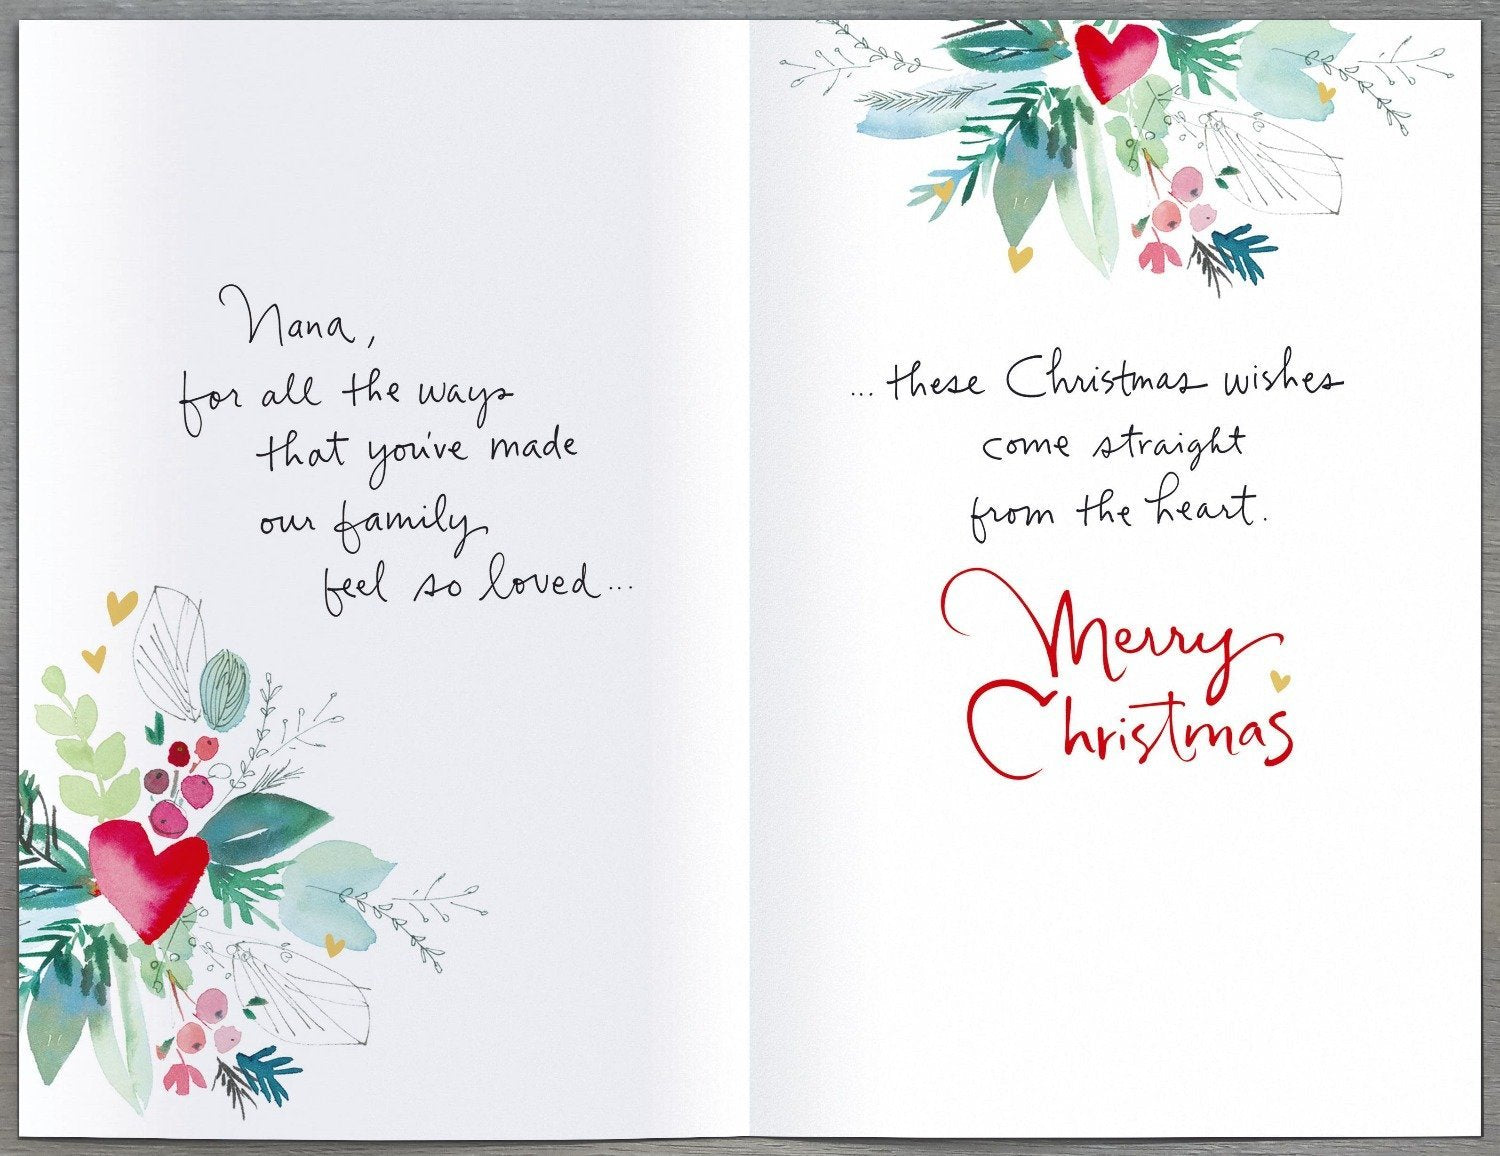 Nana,
for all the ways
that you've made
our family
feel so loved...
... these Christmas wishes
come straight
from the heart.
Merry
Christmas